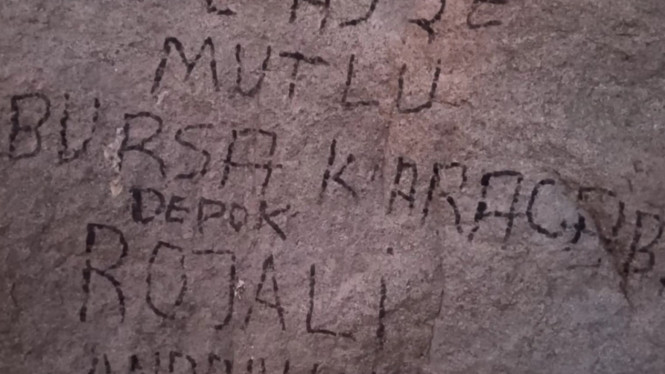 MUTLU
BURSA KARACAB
DEPOK
ROJALİ